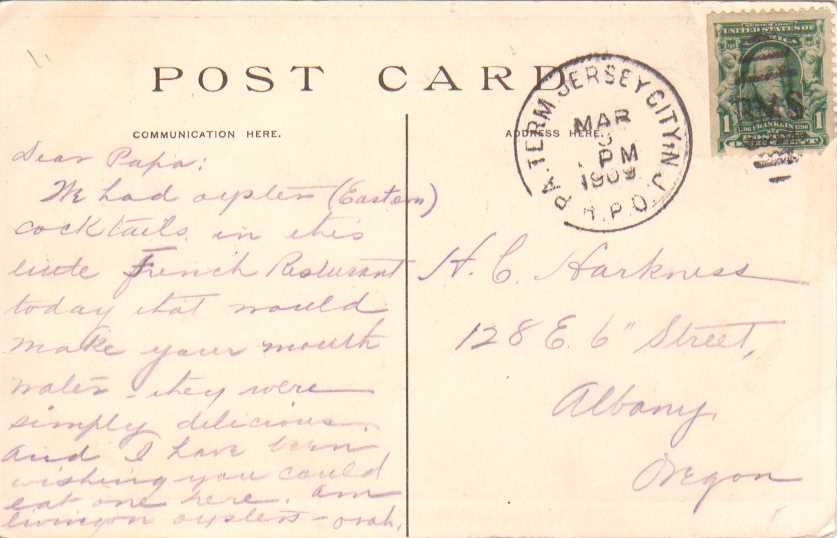 POST CARD
COMMUNICATION HERE.
ADDRESS HERE.
PA. TERM. JERSEY CITY N.J.
MAR
PM
1909
R.P.O.
R.M.S
UNITED STATES OF
AMERICA
1 FRANKLIN 1
POSTAGE
Dear Papa:
We had oysters (Eastern)
cocktails in this
little French Resturant
today that would
make your mouth
water - they were
simply delicious.
and I have been
wishing you could
eat one here. am
living on oysters -
H. C. Harkness
128 E. 6" Street,
Albany,
Oregon